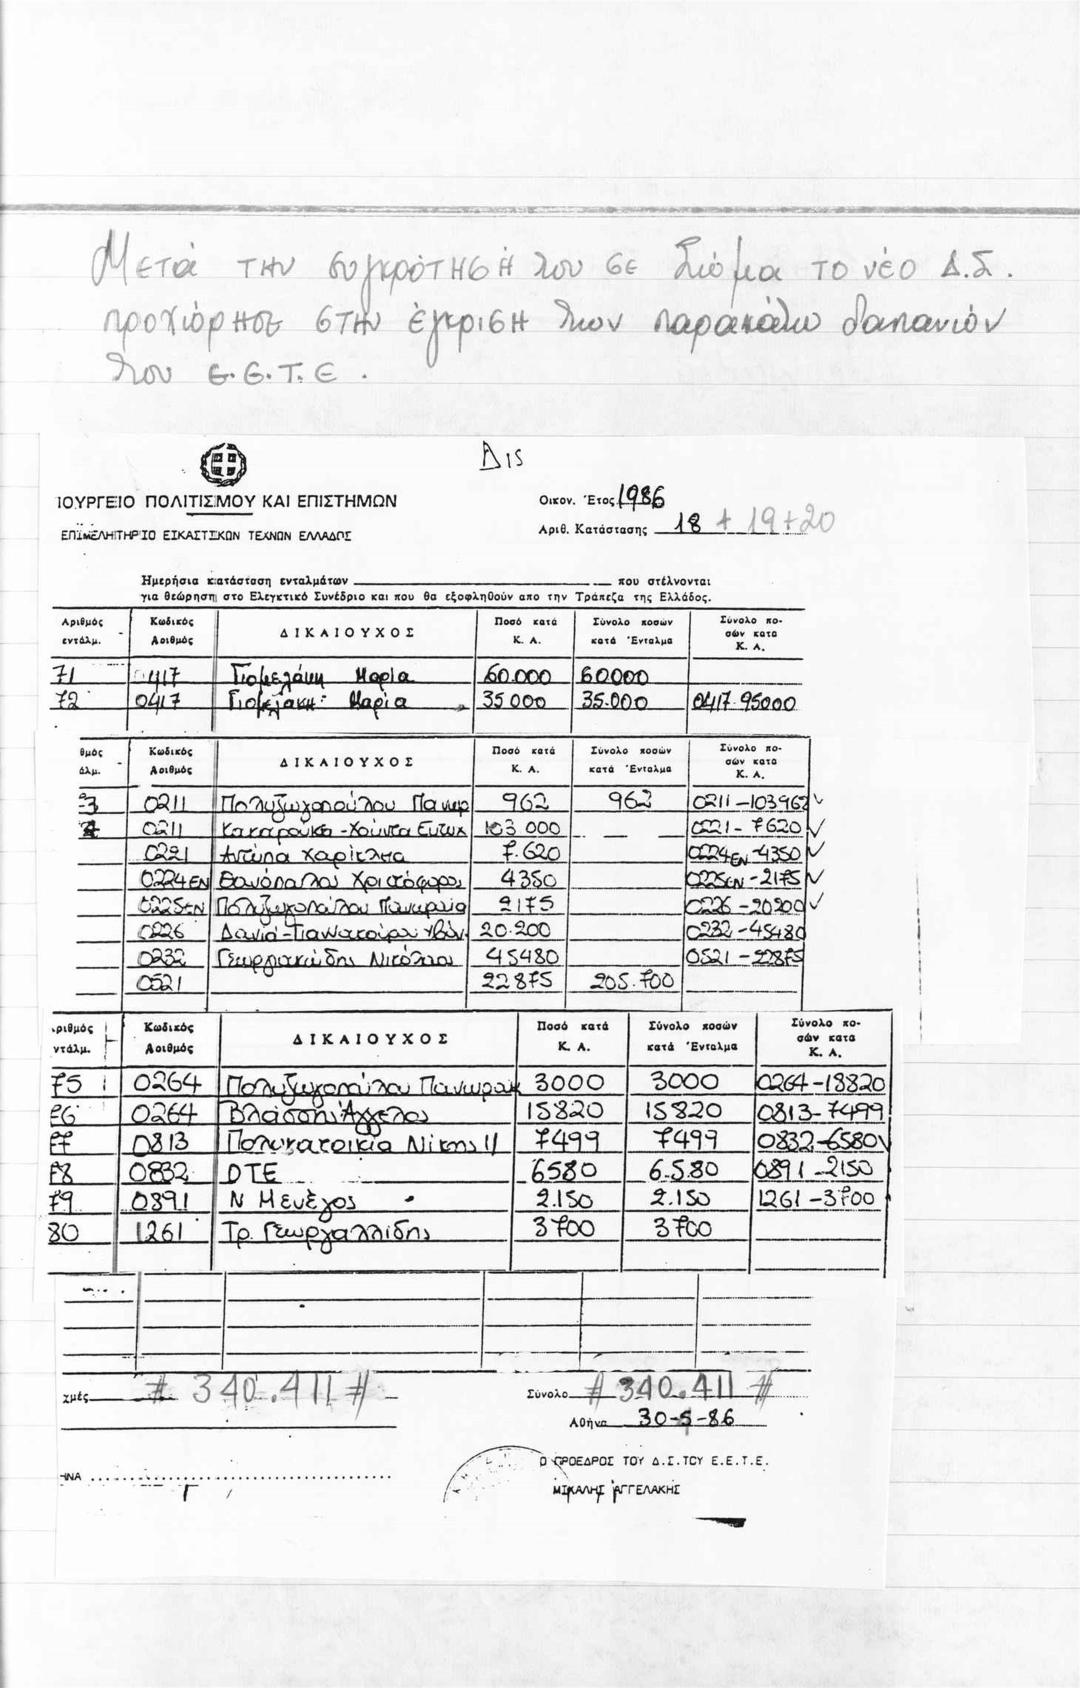 Μετά την συγκρότησή του σε Σώμα το νέο Δ.Σ.
προχώρησε στην έγκριση των παρακάτω δαπανών
του Ε.Ε.Τ.Ε.
Δις
ΙΟΥΡΓΕΙΟ ΠΟΛΙΤΙΣΜΟΥ ΚΑΙ ΕΠΙΣΤΗΜΩΝ
Οικον. Έτος 1986
ΕΠΙΜΕΛΗΤΗΡΙΟ ΕΙΚΑΣΤΙΚΩΝ ΤΕΧΝΩΝ ΕΛΛΑΔΟΣ
Αριθ. Κατάστασης 18 + 19+20
Ημερήσια κατάσταση ενταλμάτων που στέλνονται
για θεώρηση στο Ελεγκτικό Συνέδριο και που θα εξοφληθούν απο την Τράπεζα της Ελλάδος.
Αριθμός εντάλμ. Κωδικός Αριθμός ΔΙΚΑΙΟΥΧΟΣ Ποσό κατά Κ. Α. Σύνολο ποσών κατά Ένταλμα Σύνολο ποσών κατα Κ. Α.
71 0417 Γιομελάκη Μαρία 60.000 60000
72 0417 Γιομελάκη Μαρία 35000 35.000 0417-95000
θμός άλμ. Κωδικός Αριθμός ΔΙΚΑΙΟΥΧΟΣ Ποσό κατά Κ. Α. Σύνολο ποσών κατά Ένταλμα Σύνολο ποσών κατα Κ. Α.
73 0211 Πολυζωγοπούλου Παναρ 962 962 0211-103962
74 0211 Κακαρούκα-Χούντα Ευτυχ 103 000 0221-7620
0221 Αντύπα Χαρίκλεια 7.620 0224ΕΝ-4350
0224ΕΝ Θανόπουλος Χριστόφορος 4350 0225ΕΝ-2175
0225ΕΝ Πολυζωγοπούλου Παναρραία 2175 0226-20200
0226 Δανιά-Γιαννακούρου 20.200 0232-45480
0232 Γεωργιακώδης Νικόλαος 45480 0521-22875
0521 22875 205.700
ριθμός ντάλμ. Κωδικός Αριθμός ΔΙΚΑΙΟΥΧΟΣ Ποσό κατά Κ. Α. Σύνολο ποσών κατά Ένταλμα Σύνολο ποσών κατα Κ. Α.
75 0264 Πολυζωγοπούλου Παναρ 3000 3000 0264-18820
76 0264 Βλάσσης Άγγελος 15820 15820 0813-7499
77 0813 Πολυκατοικία Νίκης 11 7499 7499 0832-6580
78 0832 ΟΤΕ 6580 6.580 0891-2150
79 0891 Ν Μενέγος 2.150 2.150 1261-3700
80 1261 Τρ. Γεωργαλλίδης 3700 3700
χμές # 340.411 # Σύνολο # 340.411 #
Αθήνα 30-5-86
Ο ΠΡΟΕΔΡΟΣ ΤΟΥ Δ.Σ.ΤΟΥ Ε.Ε.Τ.Ε.
ΗΝΑ
ΜΙΧΑΛΗΣ ΑΓΓΕΛΑΚΗΣ